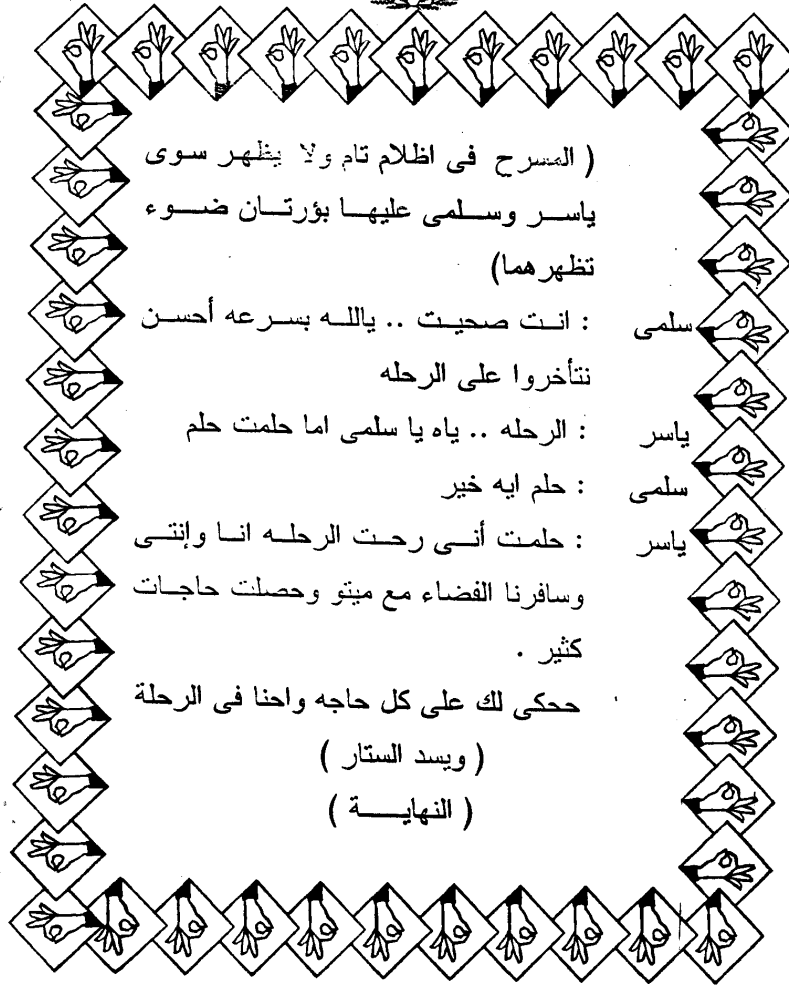 ( المسرح فى اظلام تام ولا يظهر سوى
ياسر وسلمى عليها بؤرتان ضوء
تظهرهما)
سلمى : انت صحيت .. يالله بسرعه أحسن
نتأخروا على الرحله
ياسر : الرحله .. ياه يا سلمى اما حلمت حلم
سلمى : حلم ايه خير
ياسر : حلمت أنى رحت الرحله انا وإنتى
وسافرنا الفضاء مع ميتو وحصلت حاجات
كثير .
ححكى لك على كل حاجه واحنا فى الرحلة
( ويسد الستار )
( النهايــــة )